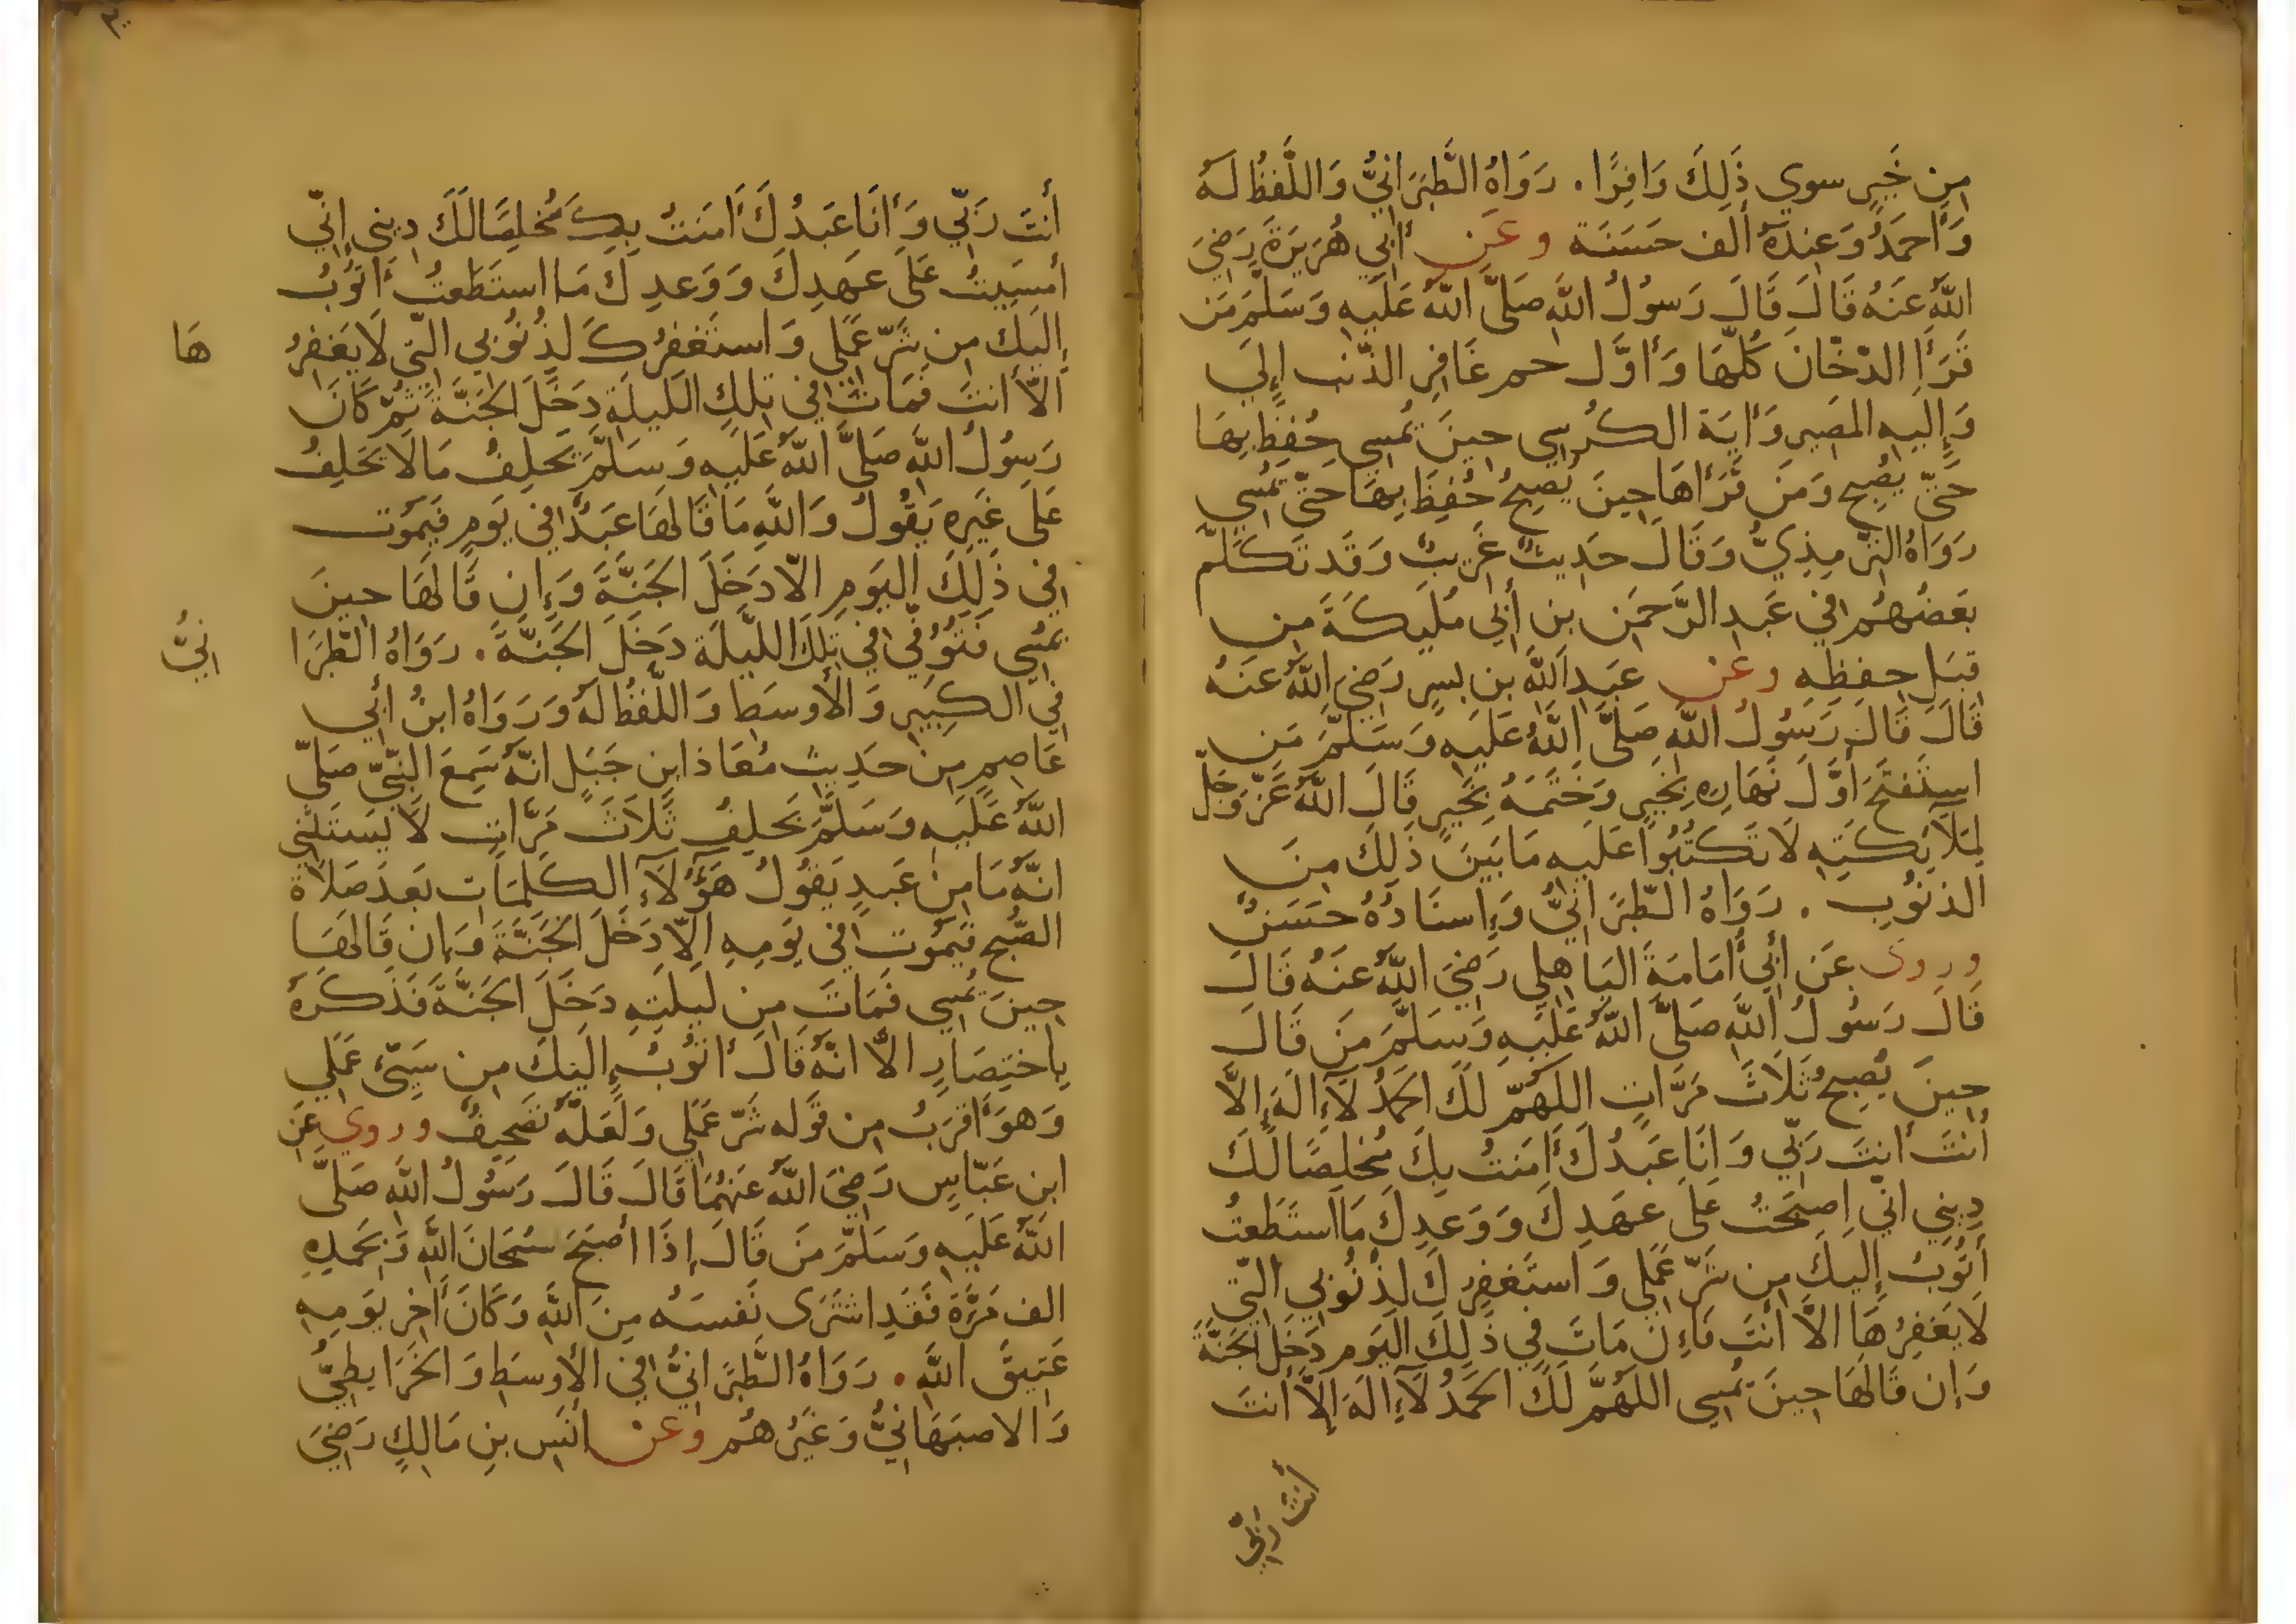 مِن خَيرٍ سوي ذَلِكَ وَافِرًا. رَوَاهُ الطَّبَرَانِيُّ وَاللَّفظُ لَهُ
وَأَحمَدُ وَعِندَهُ أَلف حَسَنَة وعَن أَبِي هُرَيرَةَ رَضِيَ
اللَّهُ عَنهُ قَالَ قَالَ رَسُولُ اللَّهِ صَلَّى اللَّهُ عَلَيهِ وَسَلَّمَ مَن
قَرَأَ الدّخَانَ كُلّهَا وَأَوَّل حم غَافِرِ الذَّنبِ إِلَي
وَإِلَيهِ المَصِيرِ وَأَيَة الكُرسِي حِينَ يُمسِي حُفِظَ بِهَا
حَتَّى يُصبِح وَمَن قَرَأَهَا حِينَ يُصبِحُ حُفِظَ بِهَا حَتَّى يُمسِي
رَوَاهُ التِّرمِذِيُّ وَقَالَ حَدِيثٌ غَرِيبٌ وَقَد تَكَلَّمَ
بَعَضُهُم فِي عَبدِ الرَّحمَن بن أَبِي مُلَيكَةَ مِن
قِبَلِ حِفظِهِ وعَن عَبدِ اللَّهِ بن بسرٍ رَضِيَ اللَّهُ عَنهُ
قَالَ قَالَ رَسُولُ اللَّهِ صَلَّى اللَّهُ عَلَيهِ وَسَلَّمَ مَنِ
استَفتَحَ أَوَّلَ نَهَارِهِ بِخَيرٍ وَخَتَمَهُ بِخَيرٍ قَالَ اللَّهُ عَزَّ وَجَلَّ
لِمَلَآئِكَتِهِ لَا تَكتُبُوا عَلَيهِ مَا بَينَ ذَلِكَ مِنَ
الذنُوبِ. رَوَاهُ الطَّبَرَانِيُّ وَإِسنَادُهُ حَسَنٌ
وروى عَن أَبِي أُمَامَةَ البَاهِلِي رَضِيَ اللَّهُ عَنهُ قَالَ
قَالَ رَسُولُ اللَّهِ صَلَّى اللَّهُ عَلَيهِ وَسَلَّمَ مَن قَالَ
حِينَ يُصبِحُ ثَلَاثَ مَرَّاتٍ اللَّهُمَّ لَكَ الحَمدُ لَآ إِلَهَ إِلَّا
أَنتَ أَنتَ رَبِّي وَانَا عَبدُكَ أَمَنتُ بِكَ مُخلِصًا لَكَ
دِينِي انِّي اصبَحتُ عَلَى عَهدِكَ وَوَعدِكَ مَا استَطَعتُ
أَتُوبُ إِلَيكَ مِن شَرِّ عَمَلِي وَاستَغفِرُكَ لِذُنُوبِي الَّتِي
لَا يَغفِرُهَا الَّا أَنتَ فَإِن مَاتَ فِي ذَلِكَ اليَومِ دَخَلَ الجَنَّةَ
وَإِن قَالَهَا حِينَ يُمسِي اللَّهُمَّ لَكَ الحَمدُ لَآ إِلَهَ إِلَّا أَنتَ
أَنتَ رَبِّي
أَنتَ رَبِّي وَأَنَا عَبدُكَ أَمَنتُ بِكَ مُخلِصًا لَكَ دِينِي إِنِّي
أَمسَيتُ عَلَى عَهدِكَ وَوَعدِكَ مَا استَطَعتُ أَتُوبُ
إِلَيكَ مِن شَرِّ عَمَلِي وَاستَغفِرُكَ لِذُنُوبِي الَّتِي لَا يَغفِرُ هَا
الَّا أَنتَ فَمَاتَ فِي تِلكَ اللَيلَةِ دَخَلَ الجَنَّةَ ثُمَّ كَانَ
رَسُولُ اللَّهِ صَلَّى اللَّهُ عَلَيهِ وَسَلَّمَ يَحلِفُ مَا لَا يَحلِفُ
عَلَى غَيرِهِ يَقُولُ وَاللَّهِ مَا قَالَهَا عَبدٌ فِي يَومٍ فَيَمُوت
فِي ذَلِكَ اليَومِ الَّا دَخَلَ الجَنَّةَ وَإِن قَالَهَا حِينَ
يُمسِي فَتُوُفِّي فِي تِلكَ اللَّيلَة دَخَلَ الجَنَّةَ. رَوَاهُ الطَّبَرَا نِيُّ
فِي الكَبِيرِ وَالأَوسَطِ وَاللَّفظُ لَهُ وَرَوَاهُ ابنُ أَبِي
عَاصِمٍ مِن حَدِيثِ مُعَاذ ابنِ جَبَلٍ انَّهُ سَمِعَ النَّبِيَّ صَلَّى
اللَّهُ عَلَيهِ وَسَلَّمَ يَحلِفُ ثَلَاثَ مَرَّاتٍ لَا يَستَثنِي
انَّهُ مَا مِن عَبدٍ يَقُولُ هَؤُلَآءِ الكَلِمَات بَعدَ صَلَاة
الصُّبحِ فَيَمُوت فِي يَومِهِ الَّا دَخَلَ الجَنَّةَ وَإن قَالَهَا
حِينَ يُمسِي فَمَاتَ مِن لَيلَتِهِ دَخَلَ الجَنَّةَ فَذَكَرَهُ
بِاختِصَارٍ الَّا انَّهُ قَالَ أَتُوبُ إِلَيكَ مِن سَيِّئ عَمَلِي
وَهوَ أَقرَبُ مِن قَوله شَرِّ عَمَلِي وَلَعَلَّهُ تَصحِيفٌ وروي عَنِ
ابنِ عَبَّاسٍ رَضِيَ اللَّهُ عَنهُمَا قَالَ قَالَ رَسُولُ اللَّهِ صَلَّى
اللَّهُ عَلَيهِ وَسَلَّمَ مَن قَالَ إِذَا أَصبَحَ سُبحَانَ اللَّهِ وَبِحَمدِهِ
الف مَرَّة فَقَدِ اشتَرَى نَفسَهُ مِنَ اللَّهِ وَكَانَ أَخِر يَومِهِ
عَتِيقَ اللَّهِ. رَوَاهُ الطَّبَرَانِيُّ فِي الأَوسَطِ وَالخَرَايطِيُّ
وَالاصبَهَانِيُّ وَغَيرُهُم وعَن أَنَسِ بنِ مَالِكٍ رَضِيَ